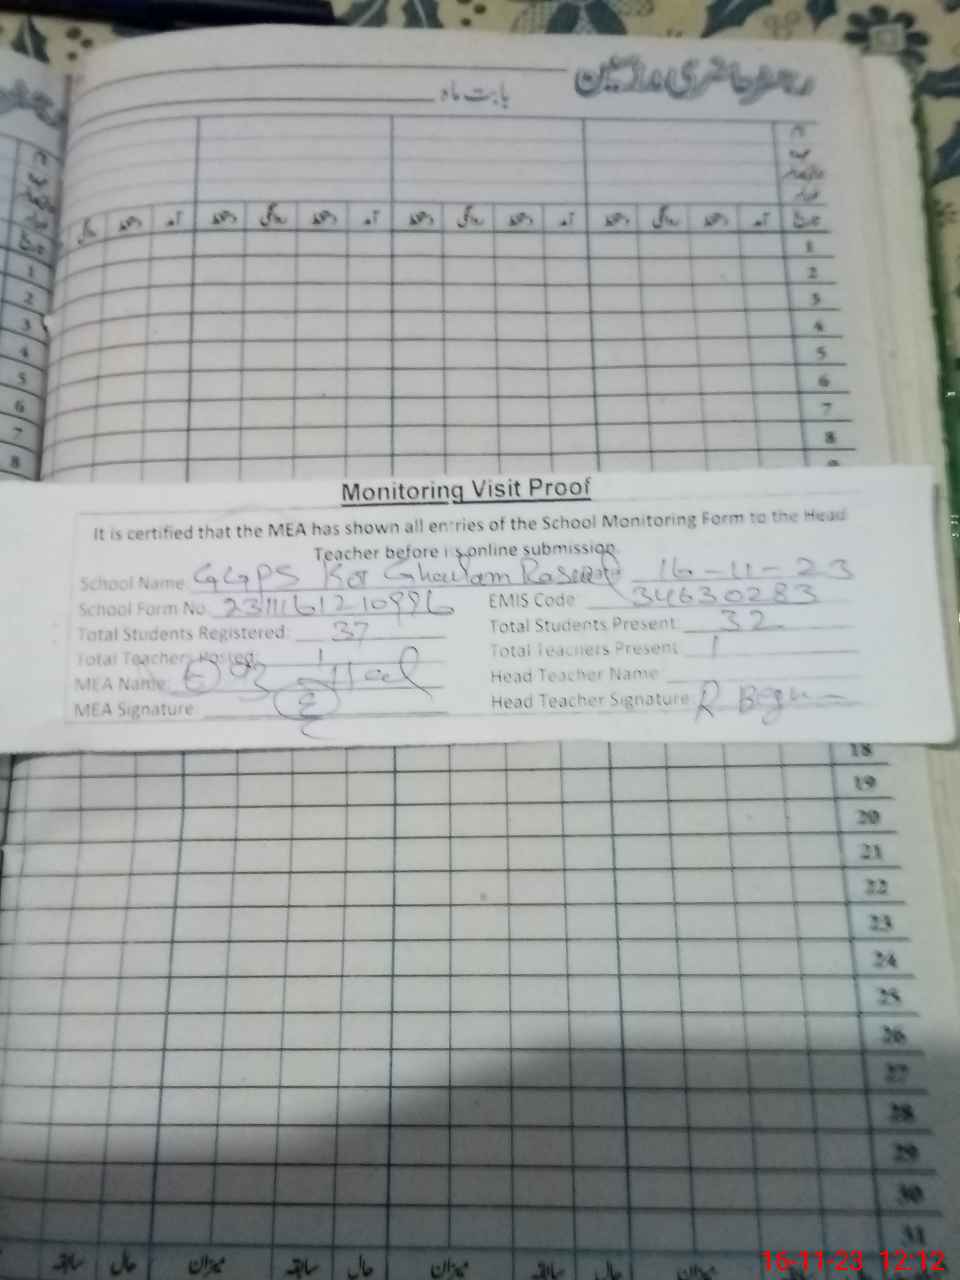 رجسٹر حاضری مدارسین
بابت ماہ
تاریخ آمد دستخط روانگی دستخط آمد دستخط روانگی دستخط آمد دستخط روانگی دستخط آمد دستخط روانگی
1
2
3
4
5
6
7
8
Monitoring Visit Proof
It is certified that the MEA has shown all entries of the School Monitoring Form to the Head
Teacher before its online submission.
School Name GGPS Kot Ghoulam Rasool Date 16-11-23
School Form No. EMIS Code 34630283
Total Students Registered: 37 Total Students Present: 32
Total Teachers Posted: 1 Total Teachers Present: 1
MEA Name: Head Teacher Name:
MEA Signature: Head Teacher Signature: R Begum
18
19
20
21
22
23
24
25
26
27
28
29
30
31
میزان حال سابقہ میزان حال سابقہ میزان حال سابقہ
16-11-23 12:12